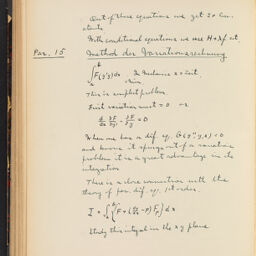 Out of these equations we get 2n con-
stants
With conditional equations we use H+λf etc.
Par. 15 Method der Variationsrechnung
∫_a^b F(y'y)dx
This is simplest problem.
First variation must = 0 or
d/dx ∂F/∂y' - ∂F/∂y = 0
When one has a dif. eq. G(y'',y',y,x) = 0
and knows it springs out of a variation
problem it is a great advantage in its
integration
There is a close connection with the
theory of par. dif. eq. 1st order.
I = ∫_a^b {F + (dy/dx - p) F_p} dx
Study this integral in the xy plane